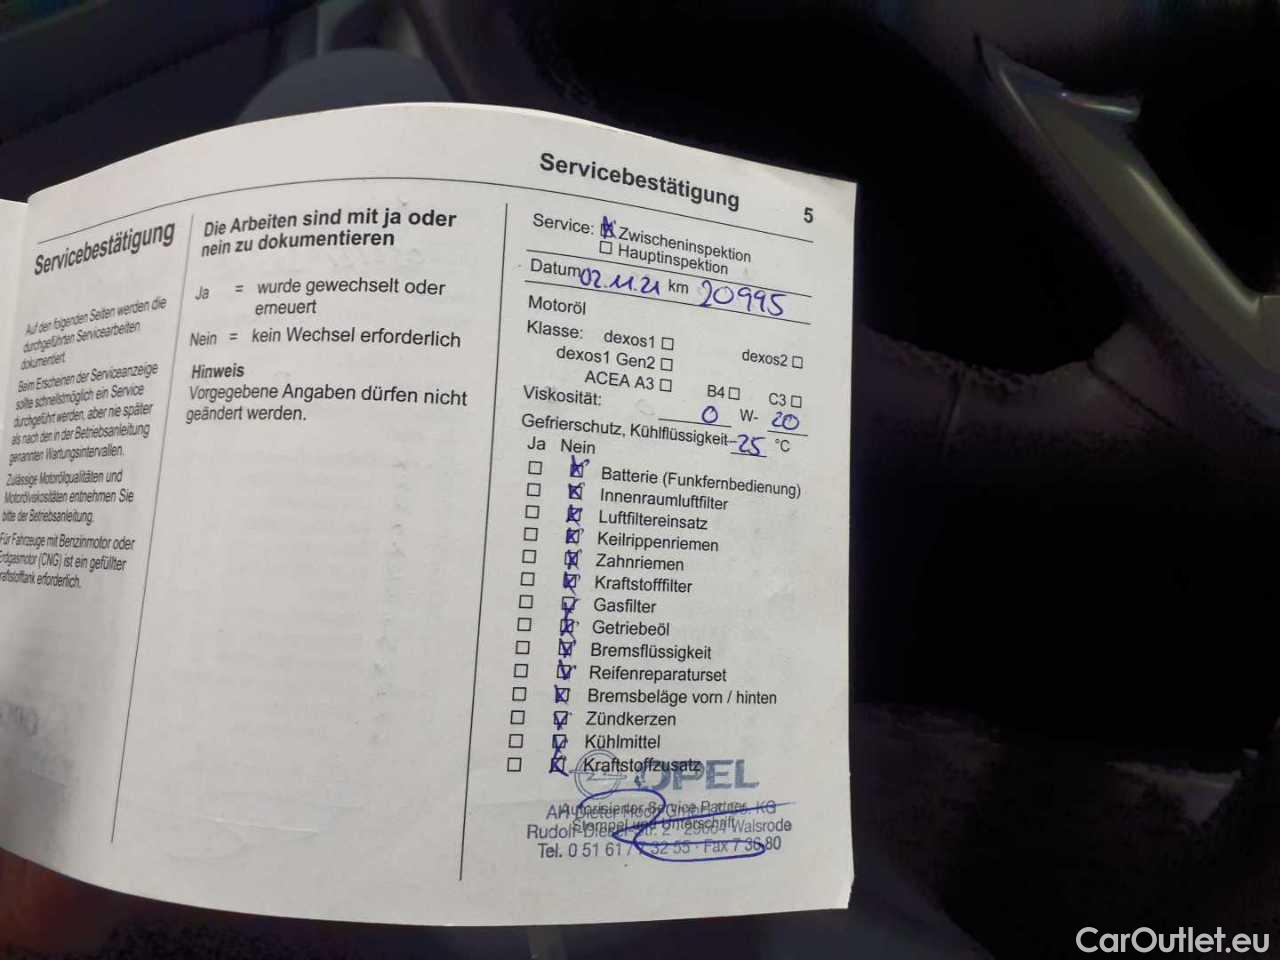 Servicebestätigung
5
Servicebestätigung
Auf den folgenden Seiten werden die
durchgeführten Servicearbeiten
dokumentiert.
Beim Erscheinen der Serviceanzeige
sollte schnellstmöglich ein Service
durchgeführt werden, aber nie später
als nach den in der Betriebsanleitung
genannten Wartungsintervallen.
Zulässige Motorölqualitäten und
Motorölviskositäten entnehmen Sie
bitte der Betriebsanleitung.
Für Fahrzeuge mit Benzinmotor oder
Erdgasmotor (CNG) ist ein gefüllter
Kraftstofftank erforderlich.
Die Arbeiten sind mit ja oder
nein zu dokumentieren
Ja = wurde gewechselt oder
erneuert
Nein = kein Wechsel erforderlich
Hinweis
Vorgegebene Angaben dürfen nicht
geändert werden.
Service: Zwischeninspektion
Hauptinspektion
Datum 02.11.21 km 20995
Motoröl
Klasse: dexos1 dexos2
dexos1 Gen2
ACEA A3 B4 C3
Viskosität: 0 W- 20
Gefrierschutz, Kühlflüssigkeit -25 °C
Ja Nein
Batterie (Funkfernbedienung)
Innenraumluftfilter
Luftfiltereinsatz
Keilrippenriemen
Zahnriemen
Kraftstofffilter
Gasfilter
Getriebeöl
Bremsflüssigkeit
Reifenreparaturset
Bremsbeläge vorn / hinten
Zündkerzen
Kühlmittel
Kraftstoffzusatz
OPEL
Autorisierter Service Partner
AH Dieter KG
Stempel und Unterschrift
Rudolf-Diesel-Str. 2 · 29664 Walsrode
Tel. 0 51 61 / 7 32 55 · Fax 7 36 80
CarOutlet.eu